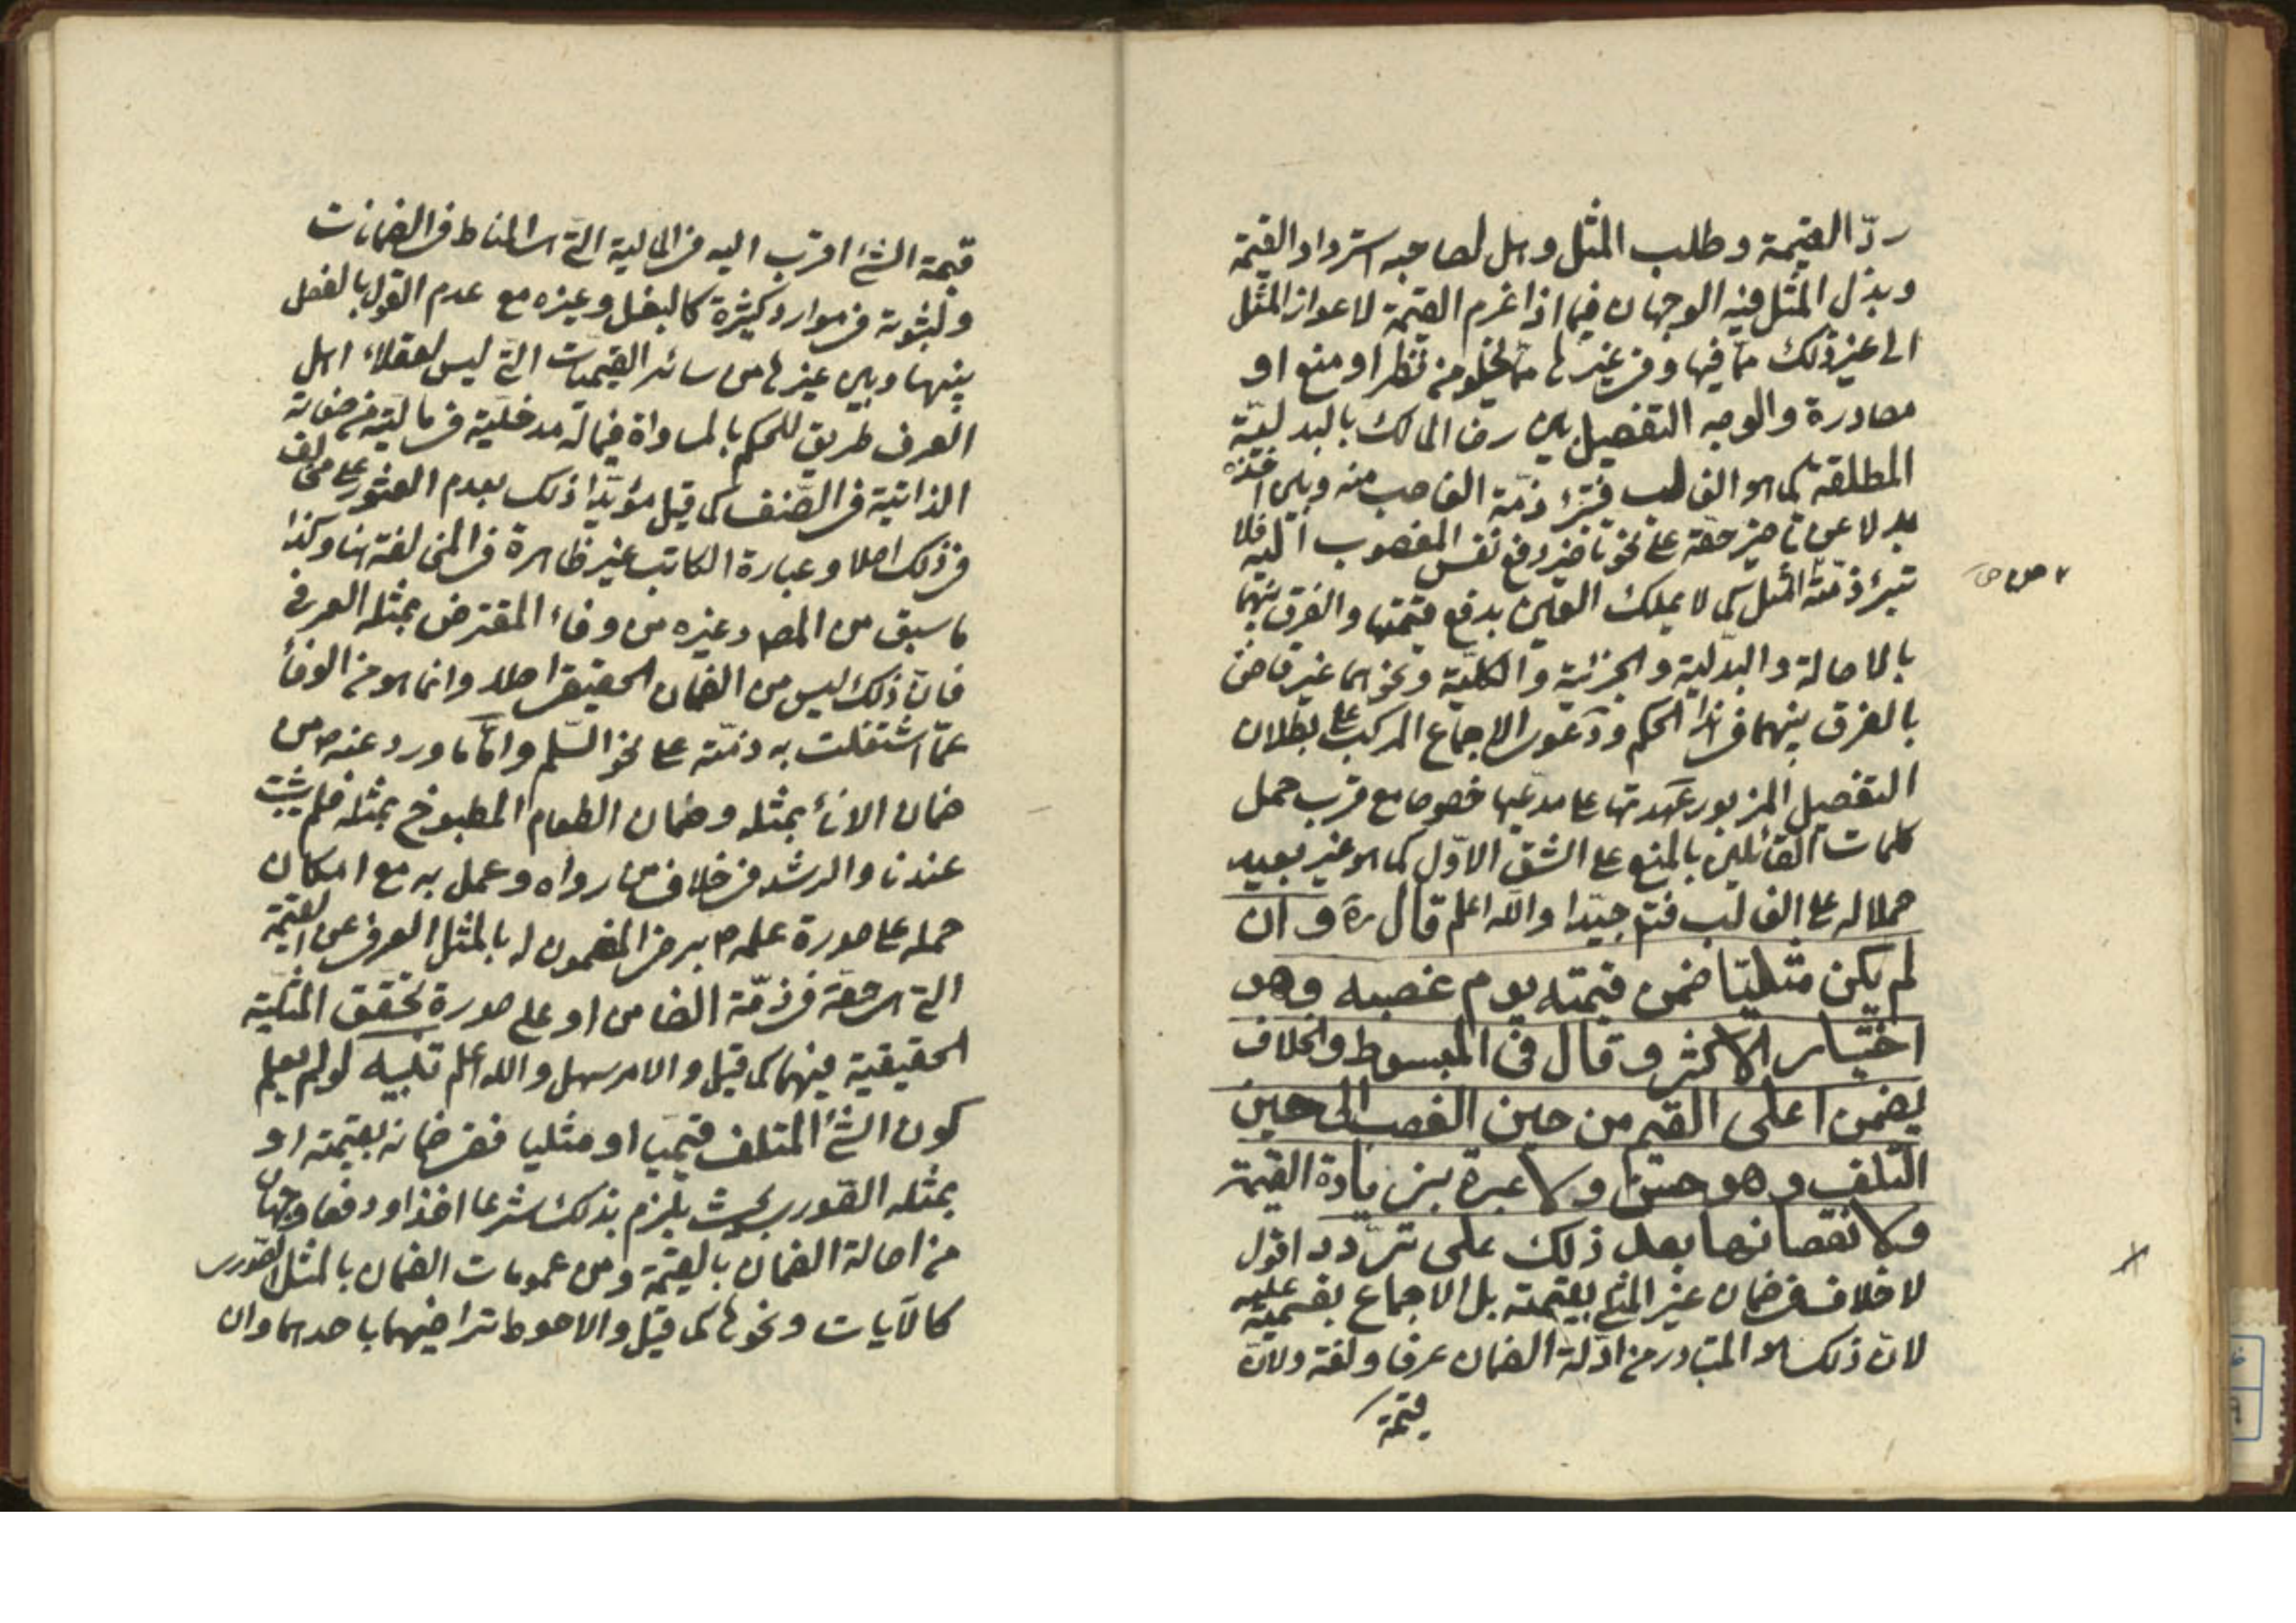 ردّ القيمة وطلب المثل وهل لصاحبه استرداد القيمة
وبذل المثل فيه الوجهان فيما اذا غرم القيمة لاعواز المثل
الى غير ذلك ممّا فيها وفى غيرها ممّا لا يخلو من نظر او منع او
مصادرة والوجه التفصيل بين رضا المالك بالبدليّة
المطلقة كما هو الغالب فتبرئ ذمّة الغاصب منه وبين اخذه
بدلا عن تاخير حقّه على نحو تاخير دفع نفس المغصوب اليه فلا
تبرئ ذمّته المثل كما لا يملك العين بدفع قيمتها والفرق بينهما
بالاصالة والبدليّة والجزئية والكليّة ونحوهما غير قاض
بالفرق بينهما فى هذا الحكم ودعوى الاجماع المركب على بطلان
التفصيل المزبور عهدتها على مدعيها خصوصا مع قرب حمل
كلمات القائلين بالمنع على الشق الاوّل كما هو غير بعيد
حملا له على الغالب فتم جيّدا والله اعلم قال ره وان
لم يكن مثليّا ضمن قيمته يوم غصبه وهو
اختيار الاكثر وقال فى المبسوط والخلاف
يضمن اعلى القيم من حين الغصب الى حين
التلف وهو حسن ولا عبرة بزيادة القيمة
ولا نقصانها بعد ذلك على تردد اقول
لا خلاف فى ضمان غير المثلى بقيمته بل الاجماع بقسميه عليه
لانّ ذلك هو المتبادر من ادلّة الضمان عرفا ولغة ولانّ
قيمة
قيمة الشئ اقرب اليه فى المالية التى هى المناط فى الضمانات
ولثبوته فى موارد كثيرة كالبغل وغيره مع عدم القول بالفصل
بينها وبين غيرها من سائر القيميات التى ليس لعقلاء اهل
العرف طريق للحكم بالمساواة فيما له مدخليّة فى ماليّته من صفاته
الذاتية فى الصّنف كما قيل مؤيّدا ذلك بعدم العثور على مخالف
فى ذلك اصلا وعبارة الكاتب غير ظاهرة فى المخالفة هنا وكذا
ما سبق من المصـ وغيره من وفاء المقترض بمثله العرفى
فانّ ذلك ليس من الضمان الحقيقى اصلا وانما هو من الوفاء
عمّا اشتغلت به ذمّته على نحو السّلم وامّا ما ورد عنه ص من
ضمان الاناء بمثله وضمان الطعام المطبوخ بمثله فلم يثبت
عندنا والرشد فى خلاف من رواه وعمل به مع امكان
حمله على صورة علمه ص برضا المضمون له بالمثل العرفى عن القيمة
التى هى حقّه فى ذمّة الضامن او على صورة تحقق المثليّة
الحقيقية فيهما كما قيل والامر سهل والله اعلم تنبيه لو لم يعلم
كون الشئ المتلف قيميّا او مثليا ففى ضمانه بقيمته او
بمثله الصّورى بحيث يلزم بذلك شرعا اخذا ودفعا وجهان
من اصالة الضمان بالقيمة ومن عمومات الضمان بالمثل الصّورى
كالآيات ونحوها كما قيل والاحوط تراضيهما باحدهما وان